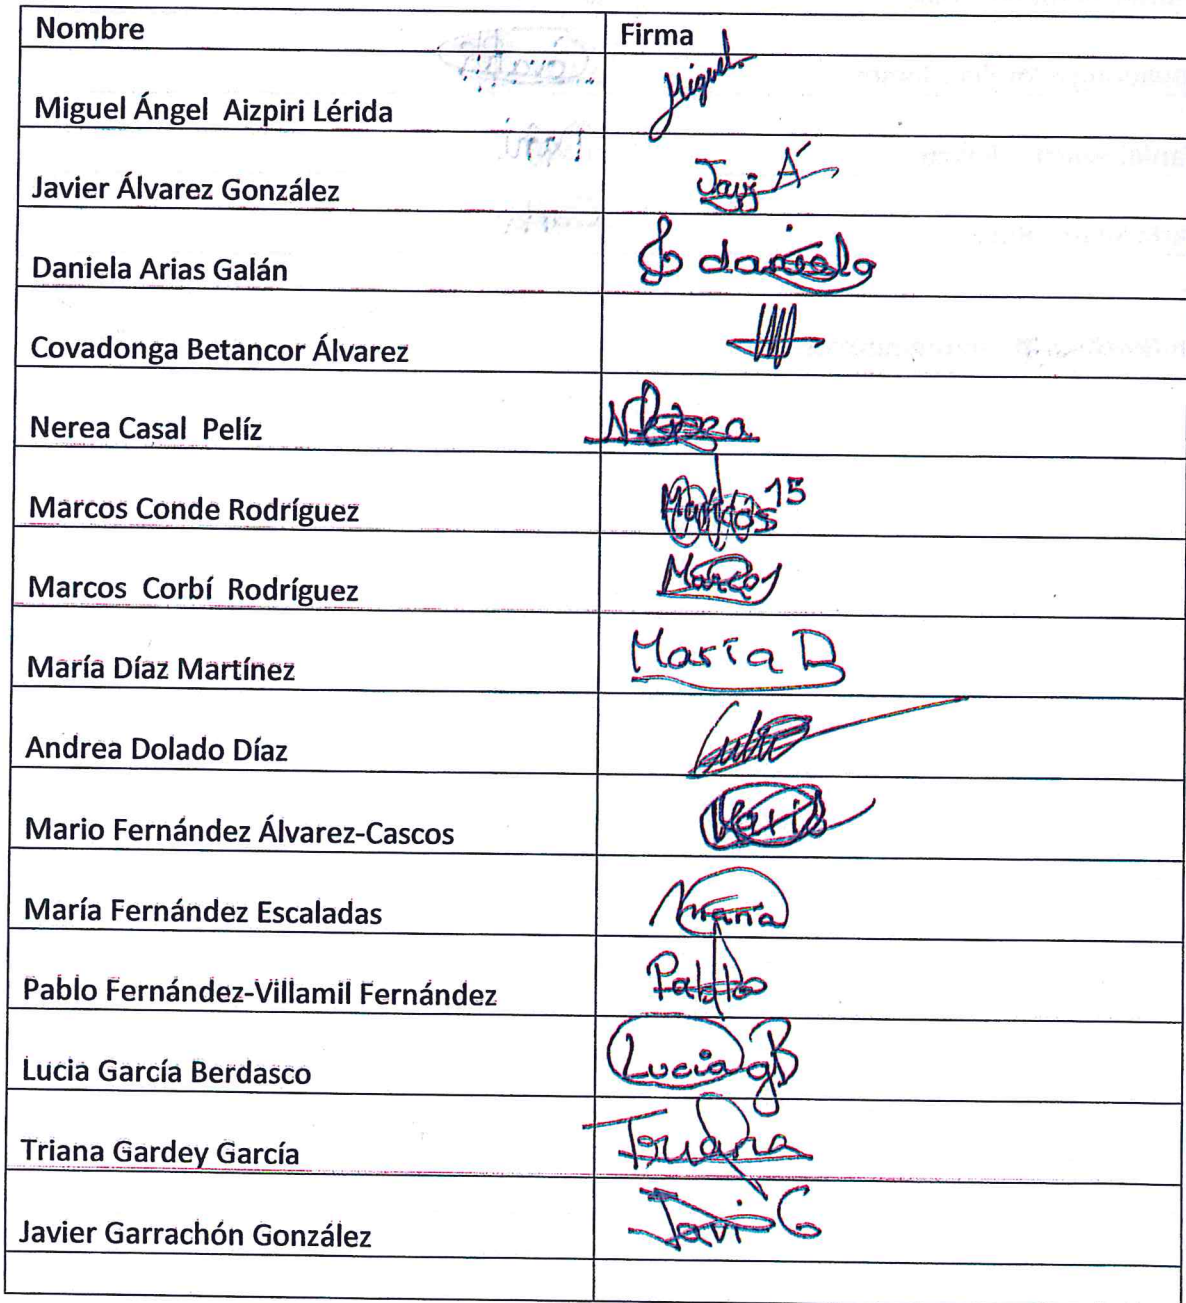 Nombre Firma
Miguel Ángel Aizpiri Lérida Miguel
Javier Álvarez González Javi A
Daniela Arias Galán daniela
Covadonga Betancor Álvarez
Nerea Casal Pelíz Nerea
Marcos Conde Rodríguez Marcos 15
Marcos Corbí Rodríguez Marcos
María Díaz Martínez María D
Andrea Dolado Díaz
Mario Fernández Álvarez-Cascos Mario
María Fernández Escaladas María
Pablo Fernández-Villamil Fernández Pablo
Lucia García Berdasco Lucia gB
Triana Gardey García Triana
Javier Garrachón González Javi G